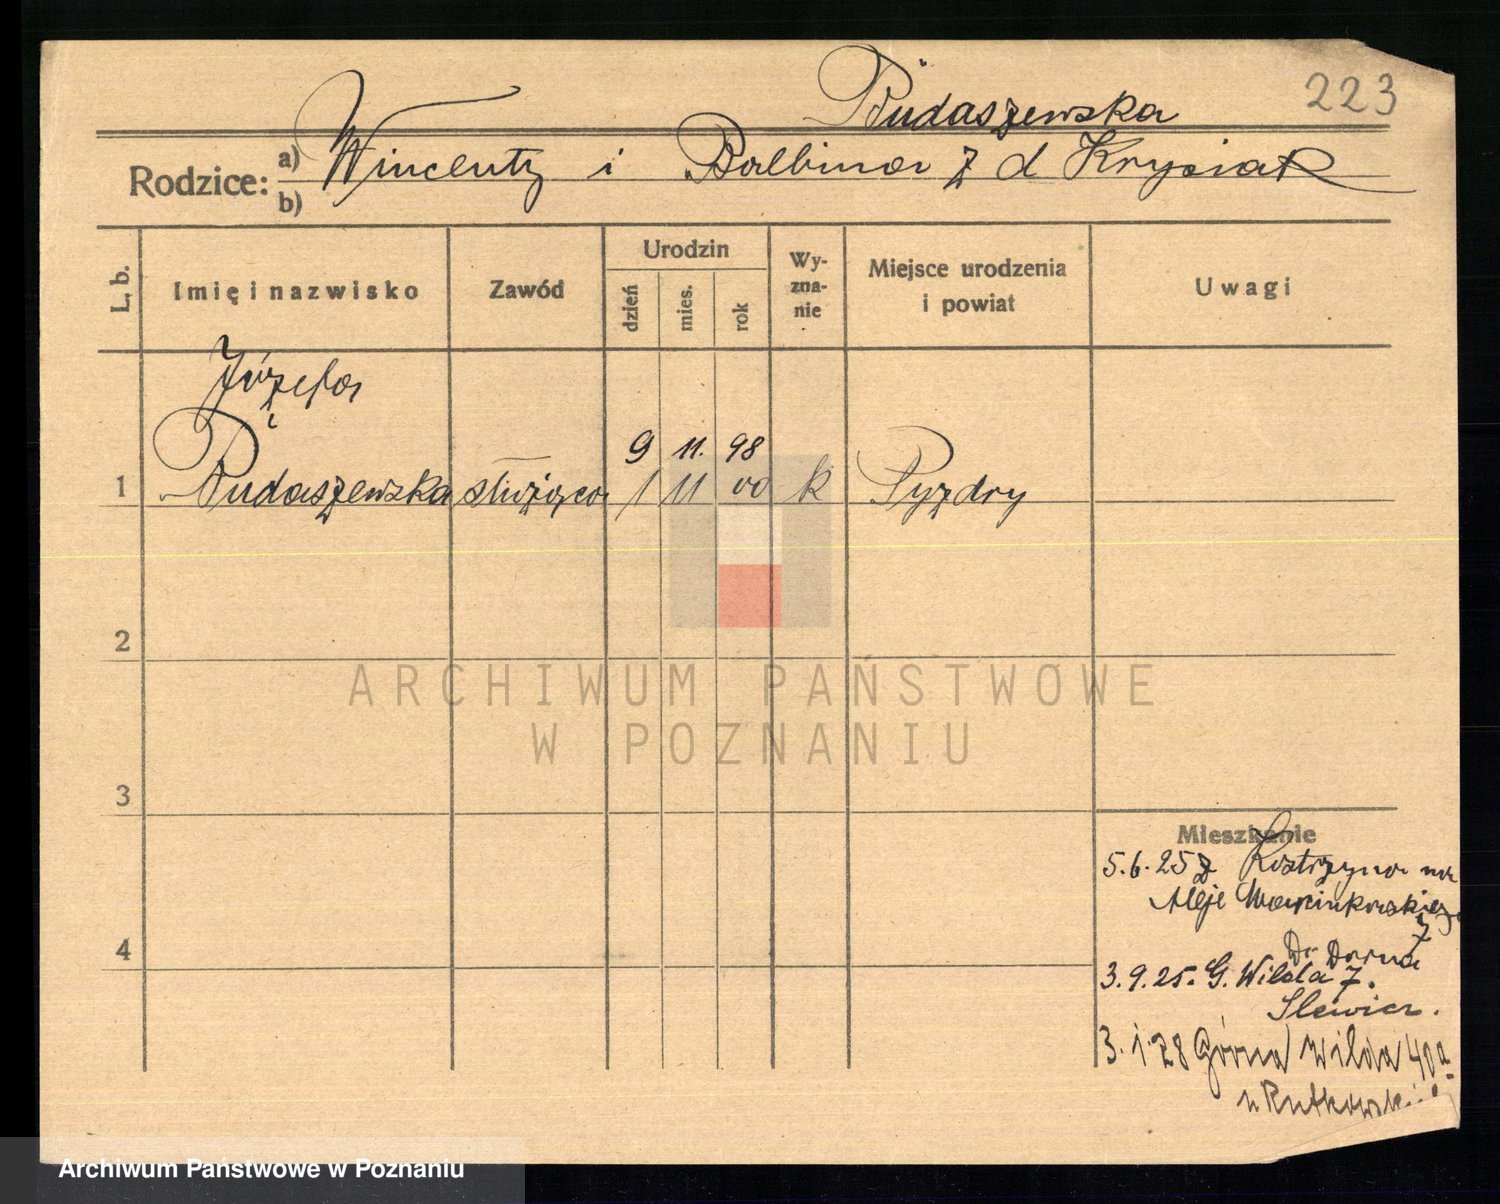 223
Budaszewska
Rodzice: a) Wincenty i Balbina z d Krysiak
b)
L. b.
Imię i nazwisko
Zawód
Urodzin
dzień
mies.
rok
Wy-
zna-
nie
Miejsce urodzenia
i powiat
Uwagi
Józefa
9 11. 98
1 Budaszewska służąca 1 11 00 k Pyzdry
2
3
4
ARCHIWUM PAŃSTWOWE
W POZNANIU
Mieszkanie
5.6.25 z Kostrzyna na
Aleje Marcinkowskiego
7
Dr
3.9.25. G. Wilda 7.
3.1.28 Górna Wilda 40a
u Rutkowski
Archiwum Państwowe w Poznaniu